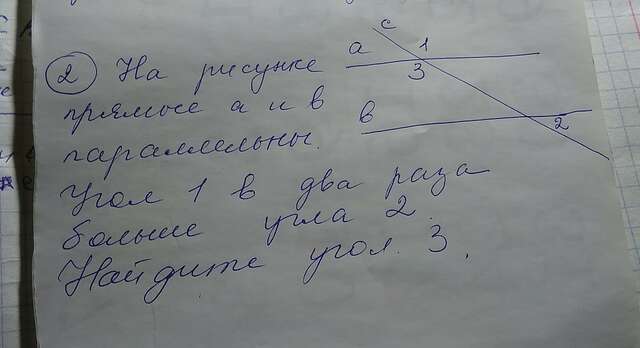 2 На рисунке
прямые а и в
параллельны.
Угол 1 в два раза
больше угла 2.
Найдите угол 3.
с
а 1
3
в
2